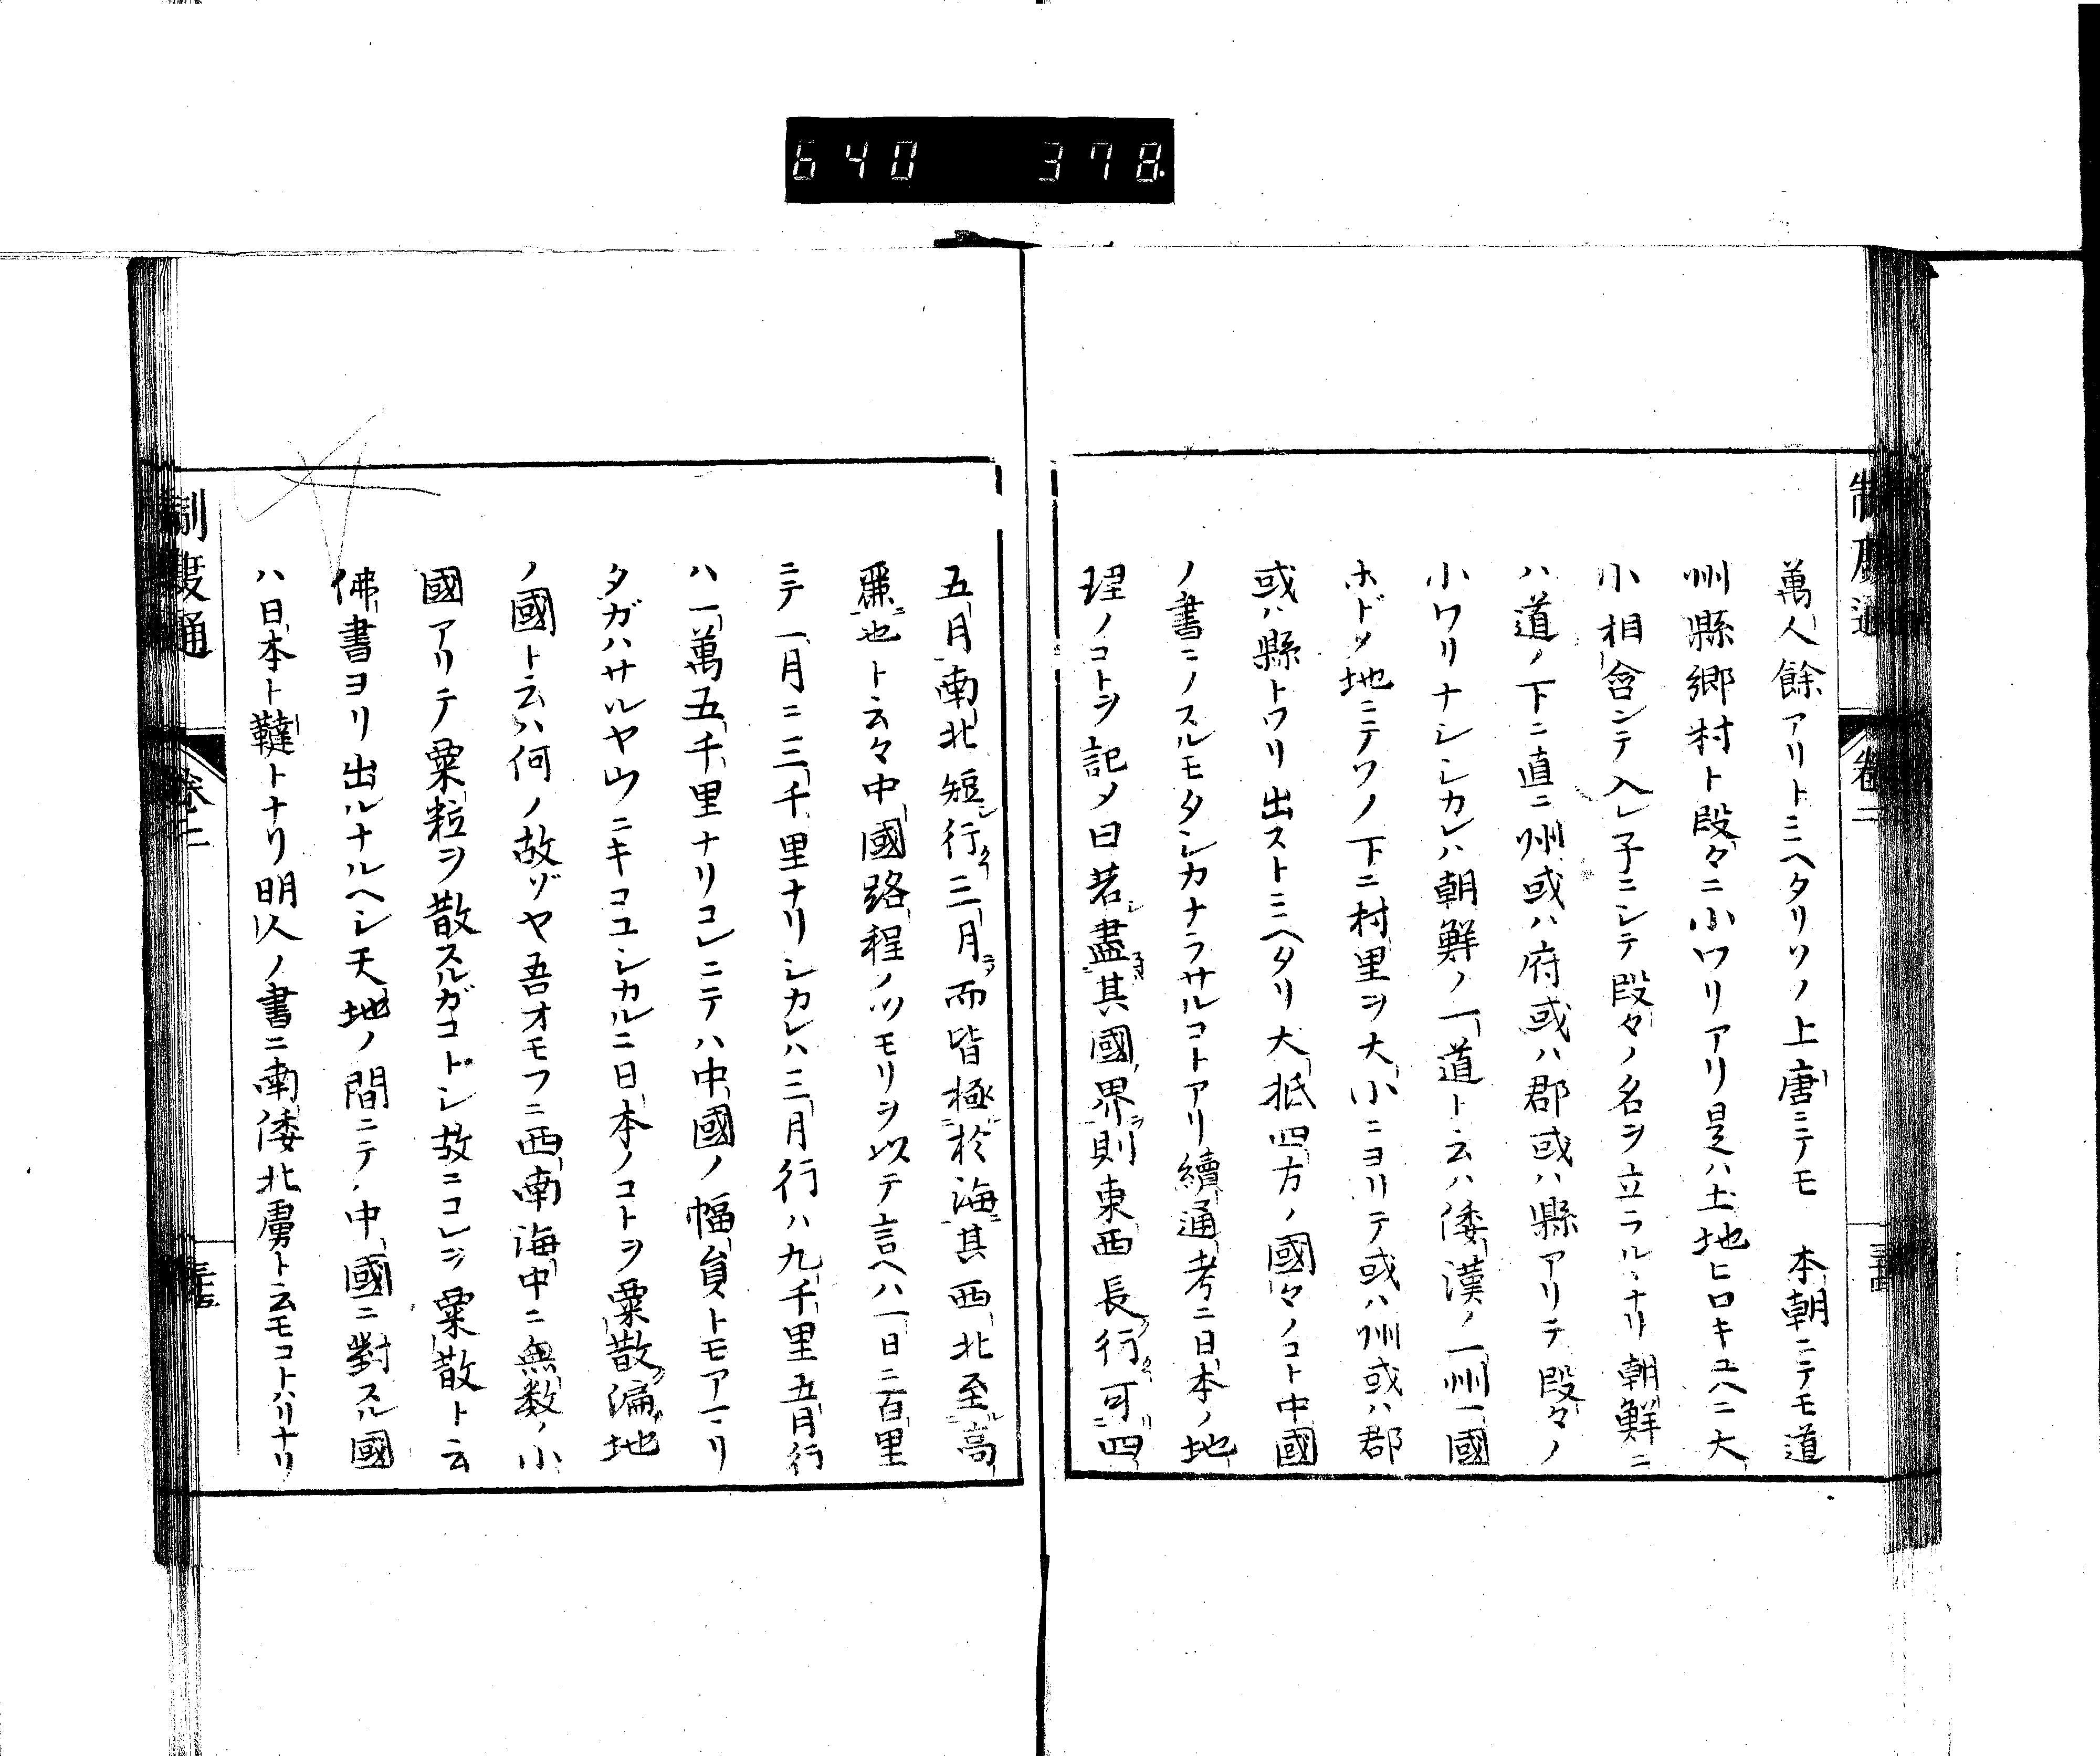 640 378.
制度通
卷二
三十四
萬人餘アリトミヘタリソノ上唐ニテモ 本朝ニテモ道
州縣鄉村ト段々ニ小ワリアリ是ハ土地ヒロキユヘニ大
小相含ンテ入レ子ニシテ段々ノ名ヲ立ラルヽナリ朝鮮ニ
ハ道ノ下ニ直ニ州或ハ府或ハ郡或ハ縣アリテ段々ノ
小ワリナシシカレハ朝鮮ノ一道ト云ハ倭漢ノ一州一國
ホドノ地ニテソノ下ニ村里ヲ大小ニヨリテ或ハ州或ハ郡
或ハ縣トワリ出ストミヘタリ大抵四方ノ國々ノコト中國
ノ書ニノスルモタシカナラサルコトアリ續通考ニ日本ノ地
理ノコトヲ記メ曰若盡其國界則東西長行可四
五月南北短行三月而皆極於海其西北至高
麗也ト云々中國路程ノツモリヲ以テ言ヘハ一日ニ百里
ニテ一月ニ三千里ナリシカレハ三月行ハ九千里五月行
ハ一萬五千里ナリコレニテハ中國ノ幅員トモアマリ
タガハサルヤウニキコユシカルニ日本ノコトヲ粟散徧地
ノ國ト云ハ何ノ故ゾヤ吾オモフニ西南海中ニ無数ノ小
國アリテ粟粒ヲ散スルガコトシ故ニコレヲ粟散ト云
佛書ヨリ出ルナルヘシ天地ノ間ニテ中國ニ對スル國
ハ日本ト韃トナリ明人ノ書ニ南倭北虜ト云モコトハリナリ
制度通
卷二
三十五